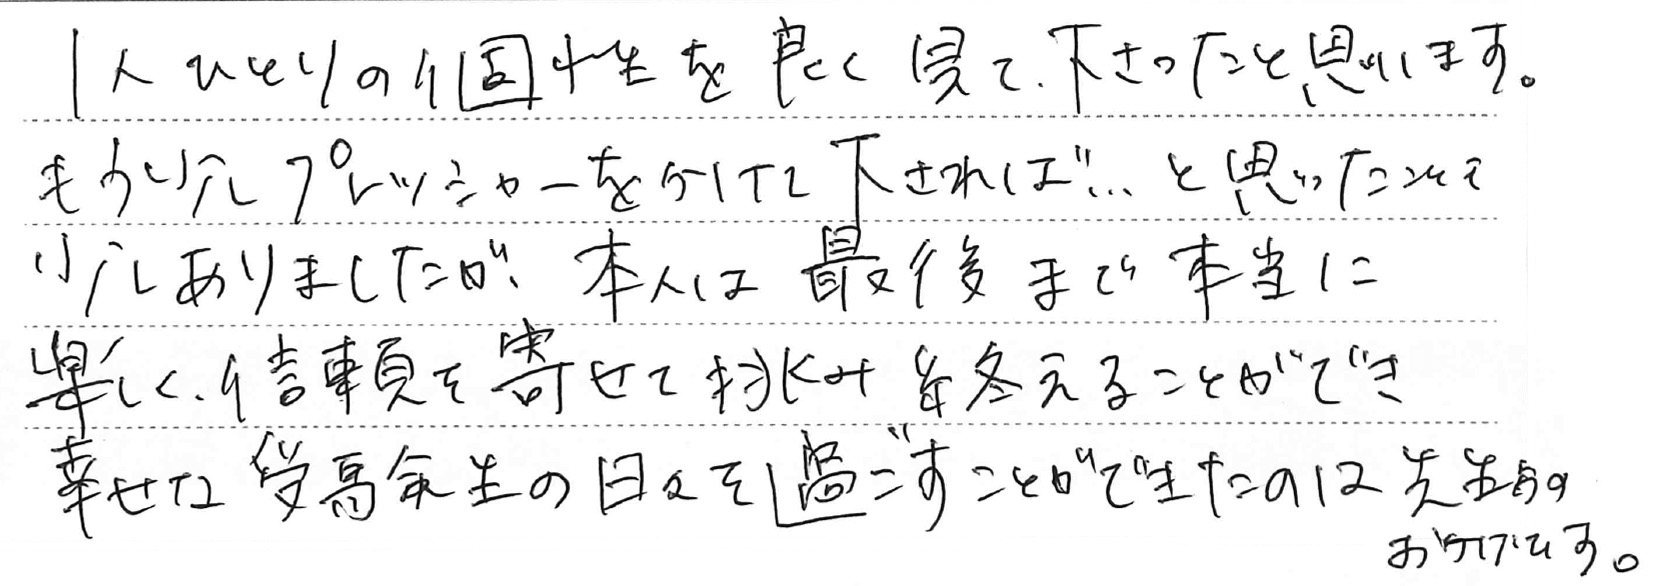 1人ひとりの個性を良く見て下さったと思います。
もう少しプレッシャーをかけて下されば…と思ったことも
少しありましたが、本人は最後まで本当に
楽しく、信頼を寄せて挑み終えることができ
幸せな受験生の日々を過ごすことができたのは先生方の
おかげです。